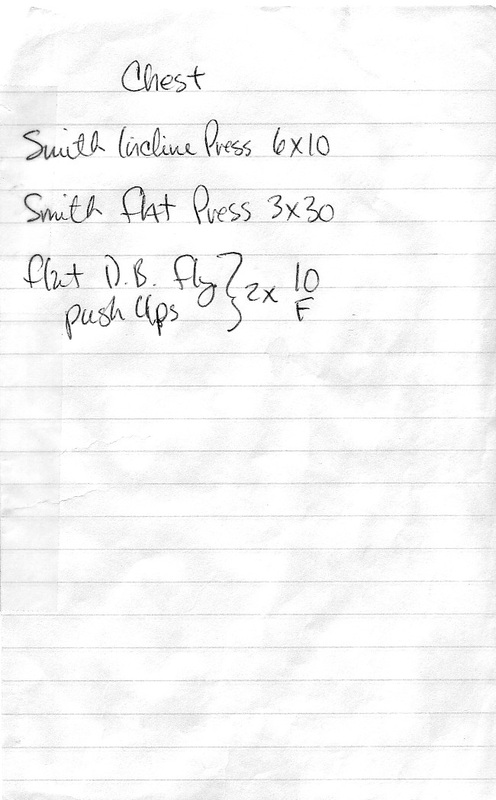 Chest
Smith Incline Press 6x10
Smith flat Press 3x30
flat D.B. fly } 2x 10
push Ups F